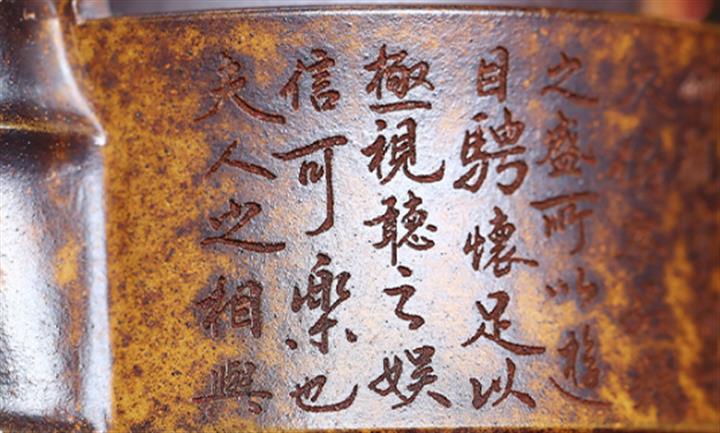 之盛所以遊
目騁懷足以
極視聽之娛
信可樂也
夫人之相與